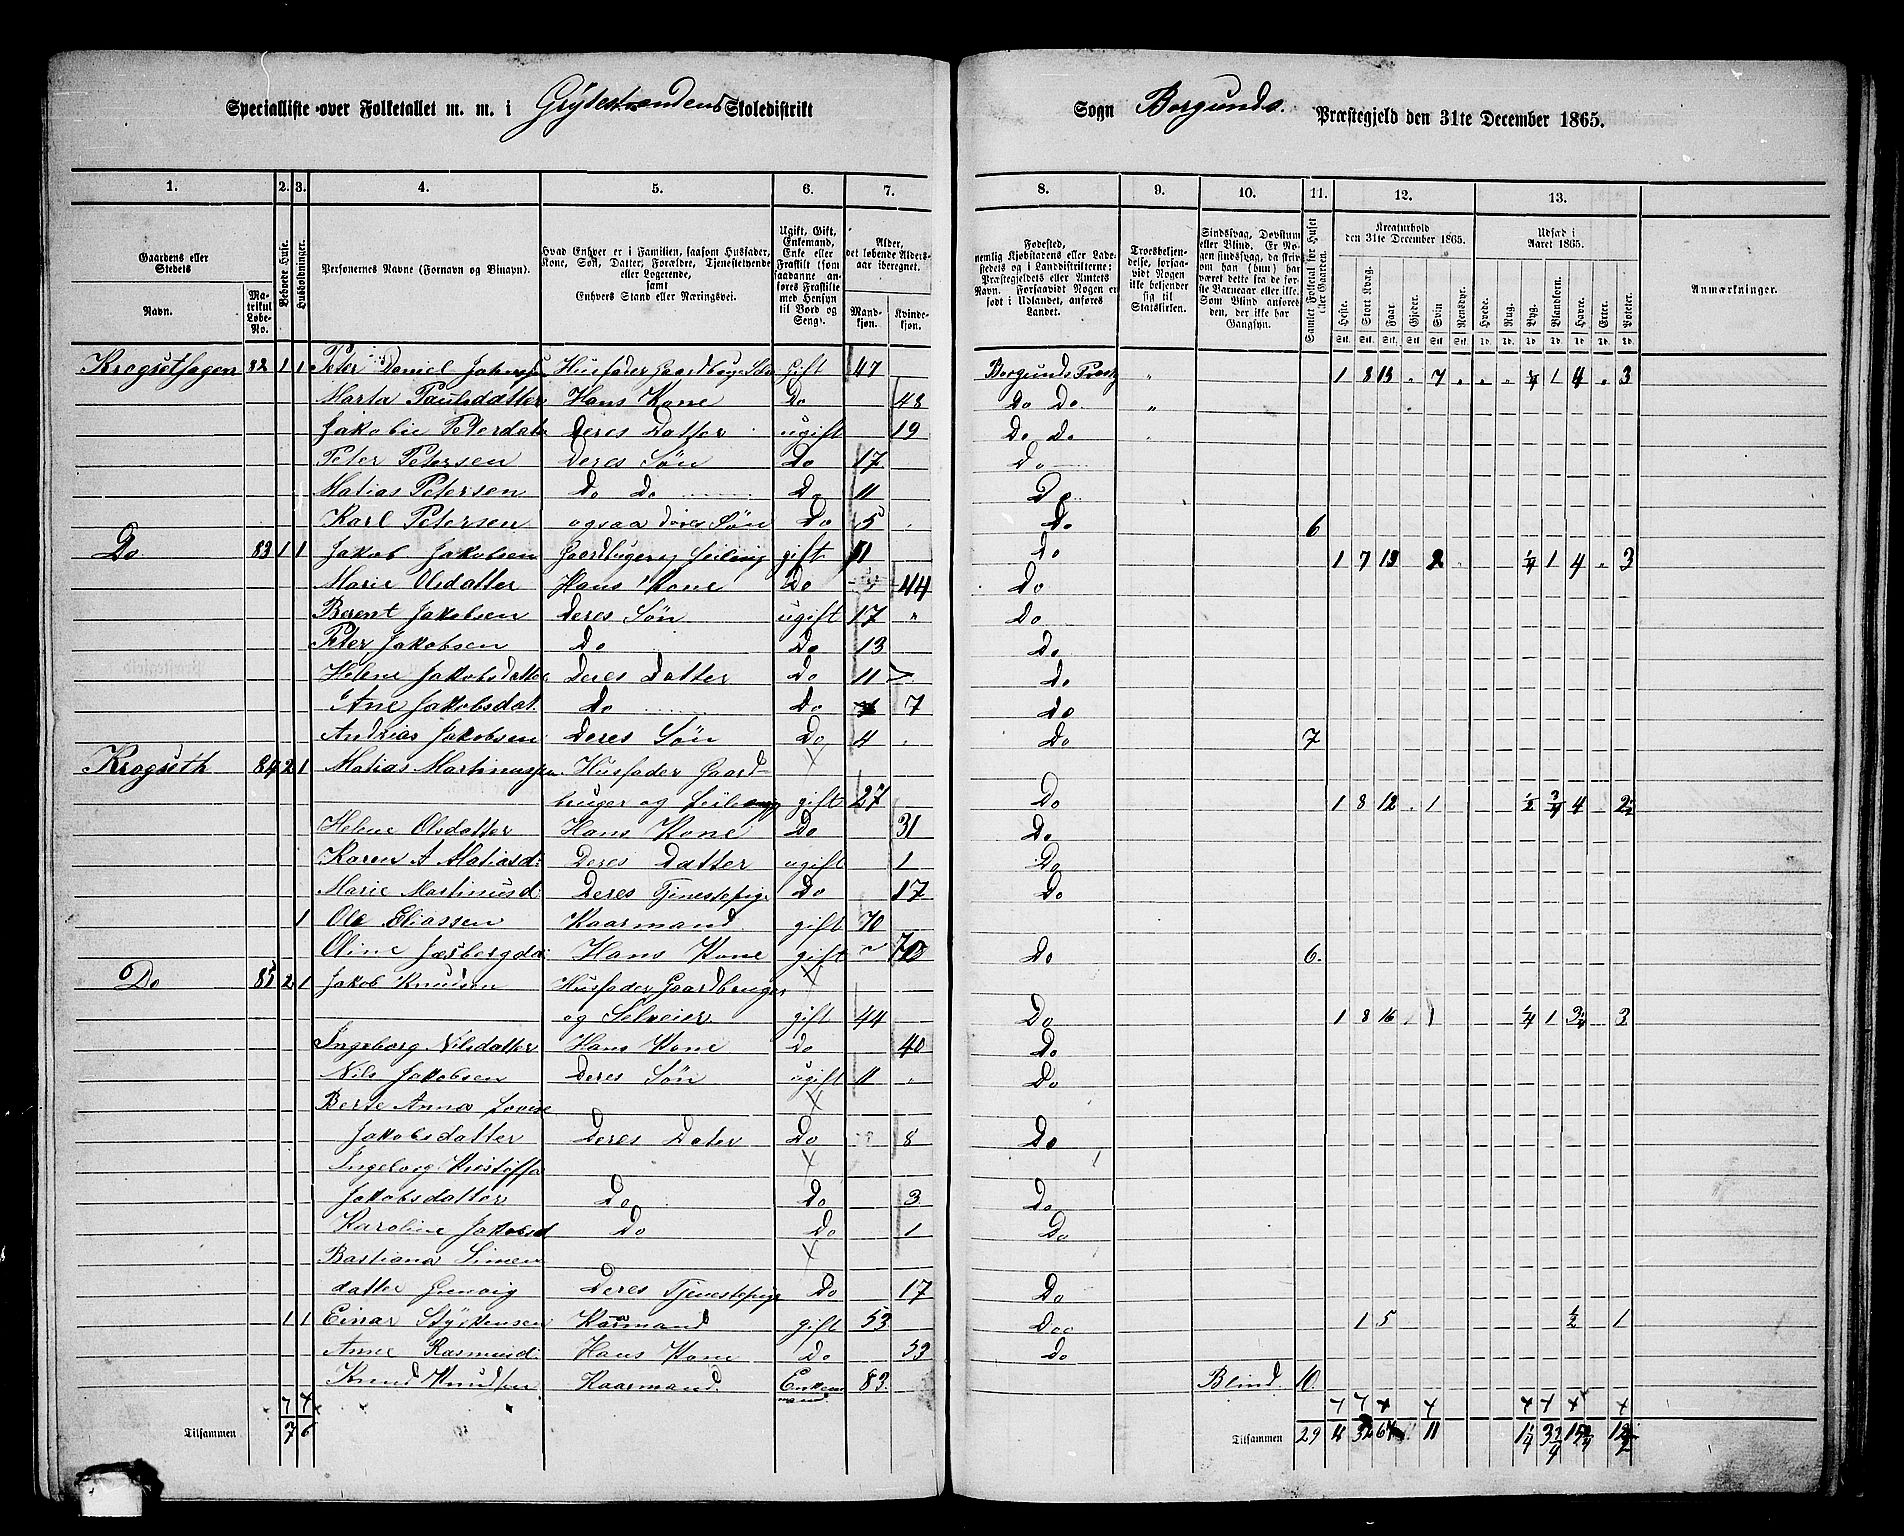 Specialliste over Folketallet m. m. i Grytestrandens Skoledistrikt
Sogn Borgunds Præstegjeld den 31te December 1865.
1. 2. 3. 4. 5. 6. 7. 8. 9. 10. 11. 12. 13.
Gaardens eller Stedets Navn. Matrikul Løbe-No. Beboede Huse. Husholdninger. Personernes Navne (Fornavn og Binavn).
Hvad Enhver er i Familien, saasom Husfader, Kone, Søn, Datter, Forældre, Tjenestetyende eller Logerende, samt Enhvers Stand eller Næringsvei.
Ugift, Gift, Enkemand, Enke eller Fraskilt (som saadanne anføres Fraskilte med Hensyn til Bord og Seng).
Alder, det løbende Alders-aar iberegnet. Mandkjøn. Kvindekjøn.
Fødested, nemlig Kjøbstadens eller Ladestedets og i Landdistrikterne: Præstegjeldets eller Amtets Navn. Forsaavidt Nogen er født i Udlandet, anføres Landet.
Troesbekjendelse, forsaavidt Nogen ikke bekjender sig til Statskirken.
Sindssvag, Døvstum eller Blind. Er Nogen sindssvag, da skrives om han (hun) har været dette fra de første Barneaar eller ikke. Som Blind anføres den, der ikke har Gangsyn.
Samlet Folketal for Huset eller Gaarden.
Kreaturhold den 31te December 1865. Heste. Stort Kvæg. Faar. Gjeder. Svin. Rensdyr.
Udsæd i Aaret 1865. Hvede. Rug. Byg. Blandkorn. Havre. Erter. Poteter.
Anmærkninger.
Krogsethagen 82 1 1 Peter Daniel Husfader gift 47 Borgunds Præstg " 1 8 13 7 1/4 1 4 3
Marta Paulsdatter Hans Kone Do 48 Do Do "
Jakobie Deres Datter ugift 19 Do do
Peter Petersen Deres Søn Do 17 Do
Matias Petersen Do Do Do 11 Do
Karl Petersen ogsaa deres Søn Do 5 Do 6
Do 83 1 1 Jakob Jakobsen gift Do 1 7 13 2 1/4 1 4 3
Marie Olsdatter Hans Kone Do 44 Do
Berent Jakobsen Deres Søn ugift 17 " Do
Peter Jakobsen Do Do 13 Do
Helene Jakobsdatter Deres Datter Do 11 Do
Ane Jakobsdat. Do Do 7 Do
Andrias Jakobsen Deres Søn Do 4 Do 7
Krogseth 84 2 1 Matias Martinussen Husfader Gaard-
bruger og gift 27 Do 1 8 12 1 1/2 3/4 4 2½
Helene Olsdatter Hans Kone Do 31 Do
Karen A Matiasd: Deres Datter ugift 1 Do
Marie Martinusd: Deres Tjenestepige Do 17 Do
1 Ole Eliassen Kaarmand gift 70
Oline Hans Kone gift 70 Do 6.
Do 85 2 1 Jakob Knudsen Husfader Gaardbruger
og Selveier gift 44 Do 1 8 16 1 1/4 1 3¼ 3
Ingeborg Nilsdatter Hans Kone Do 40 Do
Nils Jakobsen Deres Søn ugift 11 Do
Berte Anna Lovise
Jakobsdatter Deres Dater Do 8 Do
Ingeborg
Jakobsdatter Do Do 3 Do
Karoline Jakobsd Do Do 1 Do
Bastiana Simen
datter Deres Tjenestepige Do 17 Do
1 1 Einar Kaarmand gift 53 Do 1 5 1/2 1
Anne Rasmusd: Hans Kone Do 53 Do
Knud Knudsen Kaarmand. Enkemand. 83. Blind. 10.
Tilsammen 7 6
Tilsammen 29 4 32 67 11 1¼ 3¾ 15¾ 12½